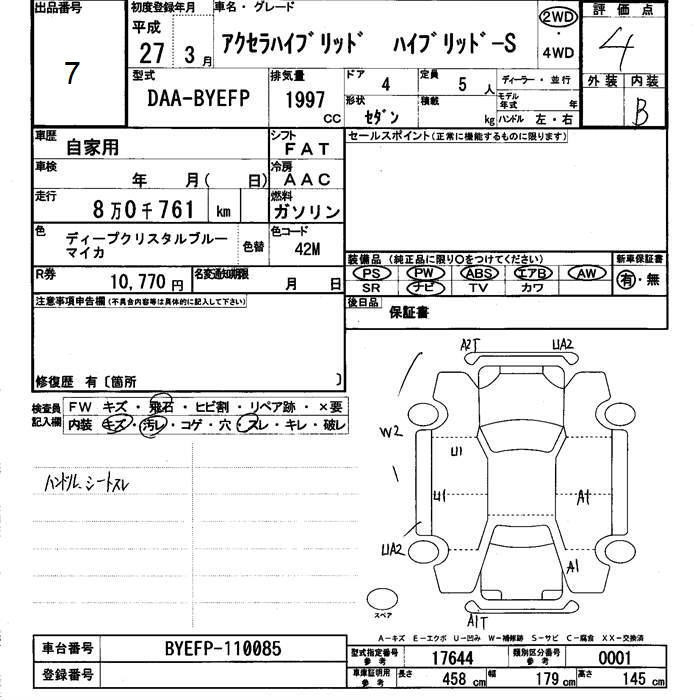 出品番号
7
初度登録年月
平成
27 3月
車名・グレード
アクセラハイブリッド ハイブリッド-S
2WD
・
4WD
評価点
4
外装 内装
B
型式
DAA-BYEFP
排気量
1997
CC
ドア 4
定員 5 人
形状 セダン
積載 kg
ディーラー・並行
モデル年式 年
ハンドル 左・右
車歴 自家用
シフト FAT
車検 年 月( 日)
冷房 AAC
走行 8万0千761 km
燃料 ガソリン
色 ディープクリスタルブルー
マイカ
色替
色コード 42M
R券 10,770円
名変通知期限 月 日
セールスポイント(正常に機能するものに限ります)
装備品(純正品に限り○をつけてください)
PS PW ABS エアB AW
SR ナビ TV カワ
新車保証書
有・無
後日品 保証書
注意事項申告欄(不具合内容等は具体的に記入して下さい)
修復歴 有〔箇所 〕
検査員
記入欄
FW キズ・飛石・ヒビ割・リペア跡・×要
内装・キズ・汚レ・コゲ・穴・スレ・キレ・破レ
ハンドル、シートスレ
A2T
UA2
W2
U1
U1
A1
UA2
A1
A1T
スペア
A-キズ E-エクボ U-凹み W-補修跡 S-サビ C-腐食 XX-交換済
車台番号 BYEFP-110085
登録番号
型式指定番号
参考
17644
類別区分番号
参考
0001
車庫証明用
参考
長さ 458 cm 幅 179 cm 高さ 145 cm